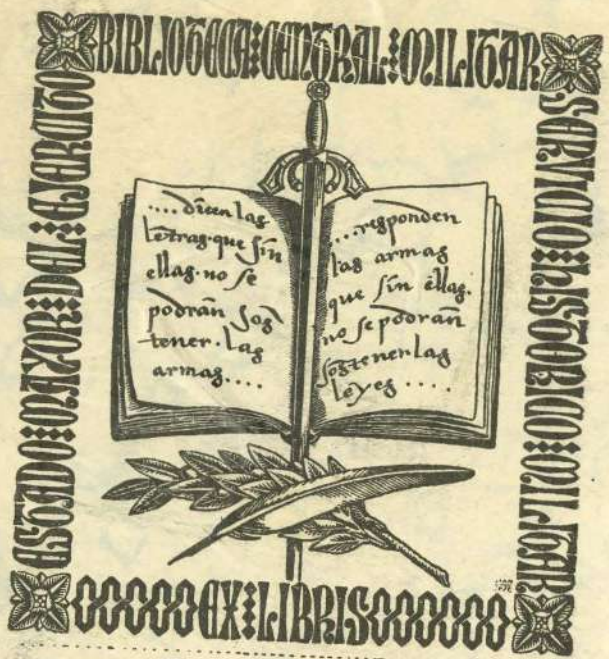 BIBLIOTECA CENTRAL MILITAR
SERVICIO HISTORICO MILITAR
ESTADO MAYOR DEL EJERCITO
....dicen las
letras que sin
ellas no se
podrán sos
tener las
armas....
....responden
las armas
que sin ellas
no se podrán
sostener las
leyes....
EX LIBRIS